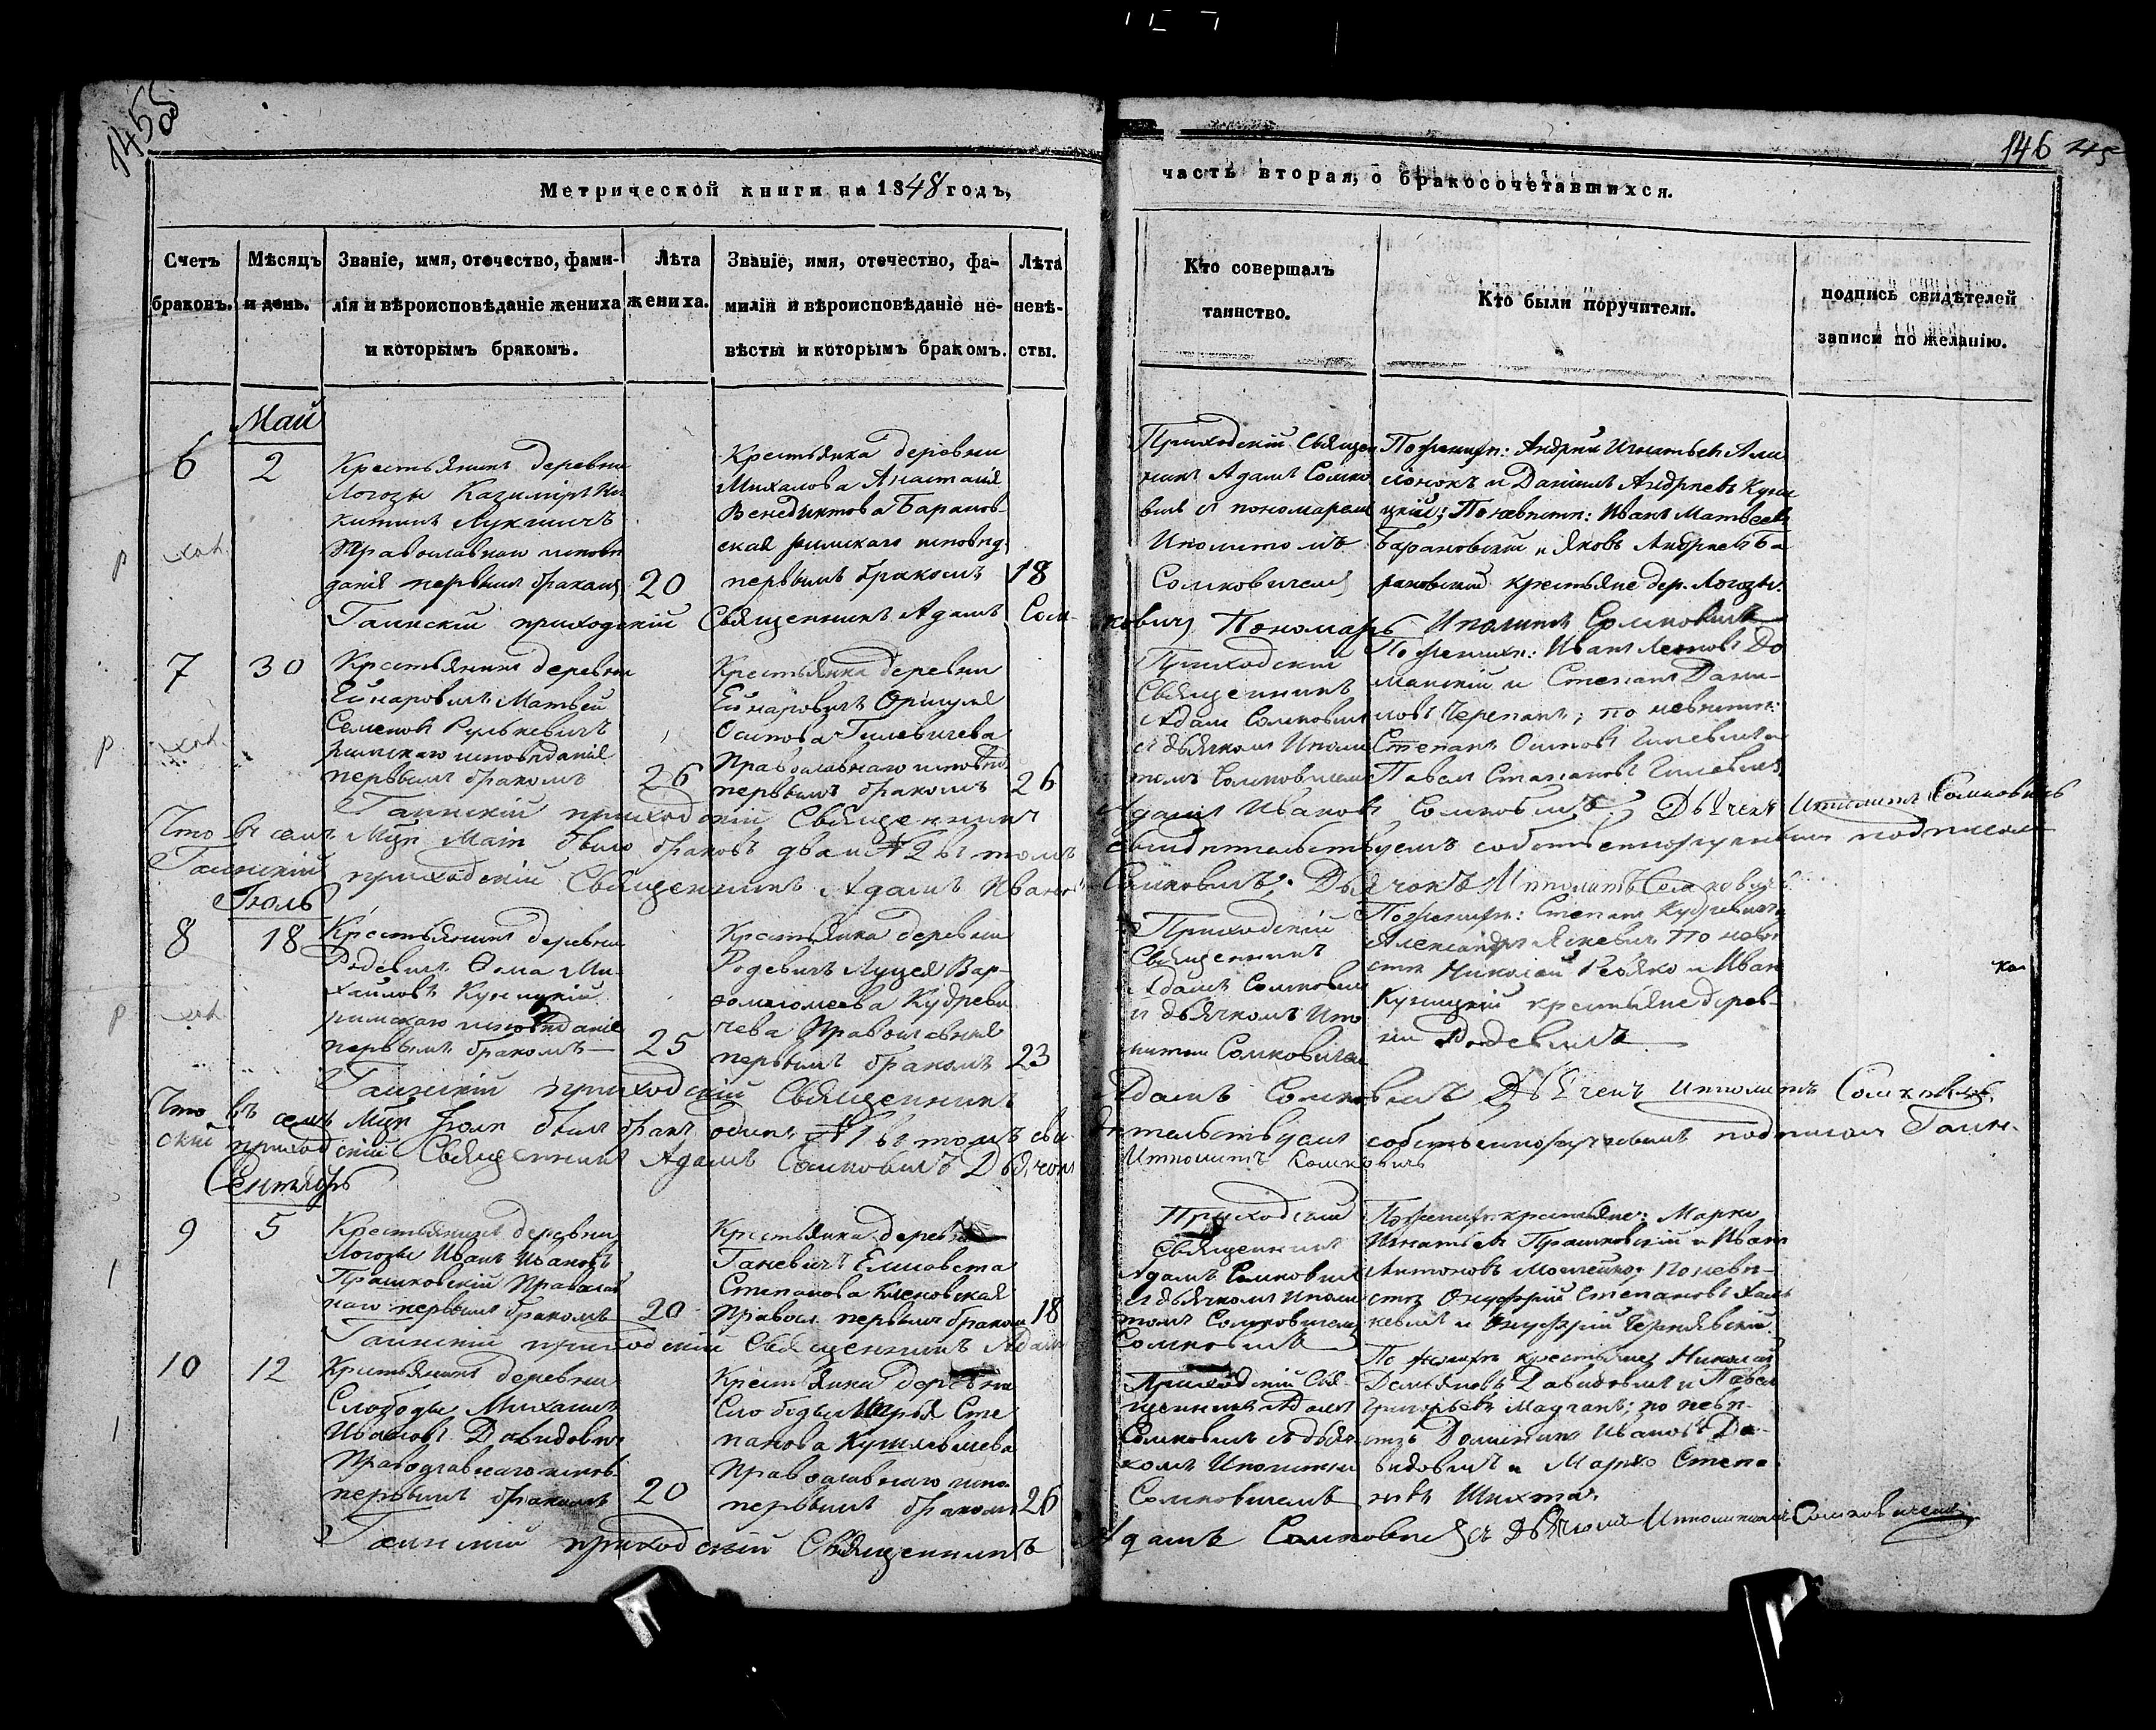 1455
146
Метрической книги на 1848 годъ,
часть вторая, о бракосочетавшихся.
Счетъ браковъ.
Мѣсяцъ и день.
Званіе, имя, отечество, фами-
лія и вѣроисповѣданіе жениха
и которымъ бракомъ.
Лѣта
жениха.
Званіе, имя, отечество, фа-
милія и вѣроисповѣданіе не-
вѣсты и которымъ бракомъ.
Лѣта
невѣ-
сты.
Кто совершалъ
таинство.
Кто были поручители.
подпись свидѣтелей
записи по желанію.
Май
6
2
Крестьянинъ деревни
Логозы Казиміръ Ни-
китинъ Лукшичъ
Православнаго исповѣ
данія первымъ бракомъ
20
Крестьянка деревни
Михалова Анастасія
Венедиктова Баранов-
ская римскаго исповѣд.
первымъ бракомъ
18
Приходскій Священ
никъ Адамъ Сомко
вичъ съ пономаремъ
Иполитомъ
Сомковичемъ
По женихѣ: Андрей Игнатьевъ
и Даніилъ Андреевъ Куни
цкій; По невѣстѣ: Иванъ Матвеевъ
Барановскій и Яковъ Андреевъ Ба
рановскій крестьяне дер. Логозы.
Таинскій приходскій Священникъ Адамъ Сомковичъ Пономарь Иполитъ Сомковичъ
7
30
Крестьянинъ деревни
Матвей
Семеновъ Рулькевичъ
римскаго исповѣданія
первымъ бракомъ
26
Крестьянка деревни
Осипова Гилевичева
Православнаго исповѣд.
первымъ бракомъ
26
Приходскій
Священникъ
Адамъ Сомковичъ
съ дьячкомъ Иполи
томъ Сомковичемъ
По женихѣ: Иванъ Леоновъ До
манскій и Степанъ Дани-
ловъ Черепанъ; по невѣстѣ:
Степанъ Осиповъ Гилевичъ и
Павелъ Степановъ Гилевичъ
Таинскій приходскій Священникъ Адамъ Ивановъ Сомковичъ Дьячекъ Иполитъ Сомковичъ
Что въ семъ Мцѣ Маіи было браковъ два №2 въ томъ свидѣтельствуемъ собственноручнымъ подписомъ
Таинскій приходскій Священникъ Адамъ Ивановъ Сомковичъ. Дьячокъ Ипполитъ Сомковичъ
Іюль
8
18
Крестьянинъ деревни
Родевичъ Ѳома Ми-
хайловъ Куницкій
римскаго исповѣданія
первымъ бракомъ
25
Крестьянка деревни
Родевичъ Луцея Вар-
ѳоломеева Кудреви
чева Православная
первымъ бракомъ
23
Приходскій
Священникъ
Адамъ Сомковичъ
и дьячкомъ Ипо
литомъ Сомковичемъ
По женихѣ: Степанъ Кудревичъ и
Александръ Яскевичъ По невѣ
стѣ Николай Ребяко и Иванъ
Куницкій крестьяне дерев-
ни Родевичъ
Таинскій приходскій Священникъ Адамъ Сомковичъ Дьячекъ Ипполитъ Сомковичъ
Что въ семъ Мцѣ Іюлѣ былъ бракъ одинъ №1 въ томъ свидѣтельствуемъ собственноручнымъ подписомъ Таин-
скій приходскій Священникъ Адамъ Сомковичъ Дьячокъ Ипполитъ Сомковичъ
Сентябрь
9
5
Крестьянинъ деревни
Логозы Иванъ Ивановъ
Прашковскій Православ
наго первымъ бракомъ
20
Крестьянка деревни
Ганевичъ Елисавета
Степанова Кленовская
Правосл. первымъ бракомъ
18
Приходскій
Священникъ
Адамъ Сомковичъ
съ дьячкомъ Иполи
томъ Сомковичемъ
По женихѣ крестьяне: Марко
Игнатьевъ Прашковскій и Иванъ
Антоновъ; По невѣ-
стѣ Онуфрій Степановъ
и Онуфрій Чернявскій.
Таинскій приходскій Священникъ Адамъ Сомковичъ
10
12
Крестьянинъ деревни
Слободы Михаилъ
Ивановъ Давидовичъ
Православнаго испов.
первымъ бракомъ
20
Крестьянка деревни
Слободы Марья Сте
панова
Православнаго испо.
первымъ бракомъ
26
Приходскій Свя-
щенникъ Адамъ
Сомковичъ съ дьяч-
комъ Иполитомъ
Сомковичемъ
По женихѣ крестьяне Николай
Демьяновъ Давидовичъ и Павелъ
Григорьевъ; по невѣ-
стѣ Доминикъ Ивановъ Да-
видовичъ и Марко Степа
новъ Шихта.
Таинскій приходскій Священникъ Адамъ Сомковичъ съ Дьячкомъ Ипполитомъ Сомковичемъ